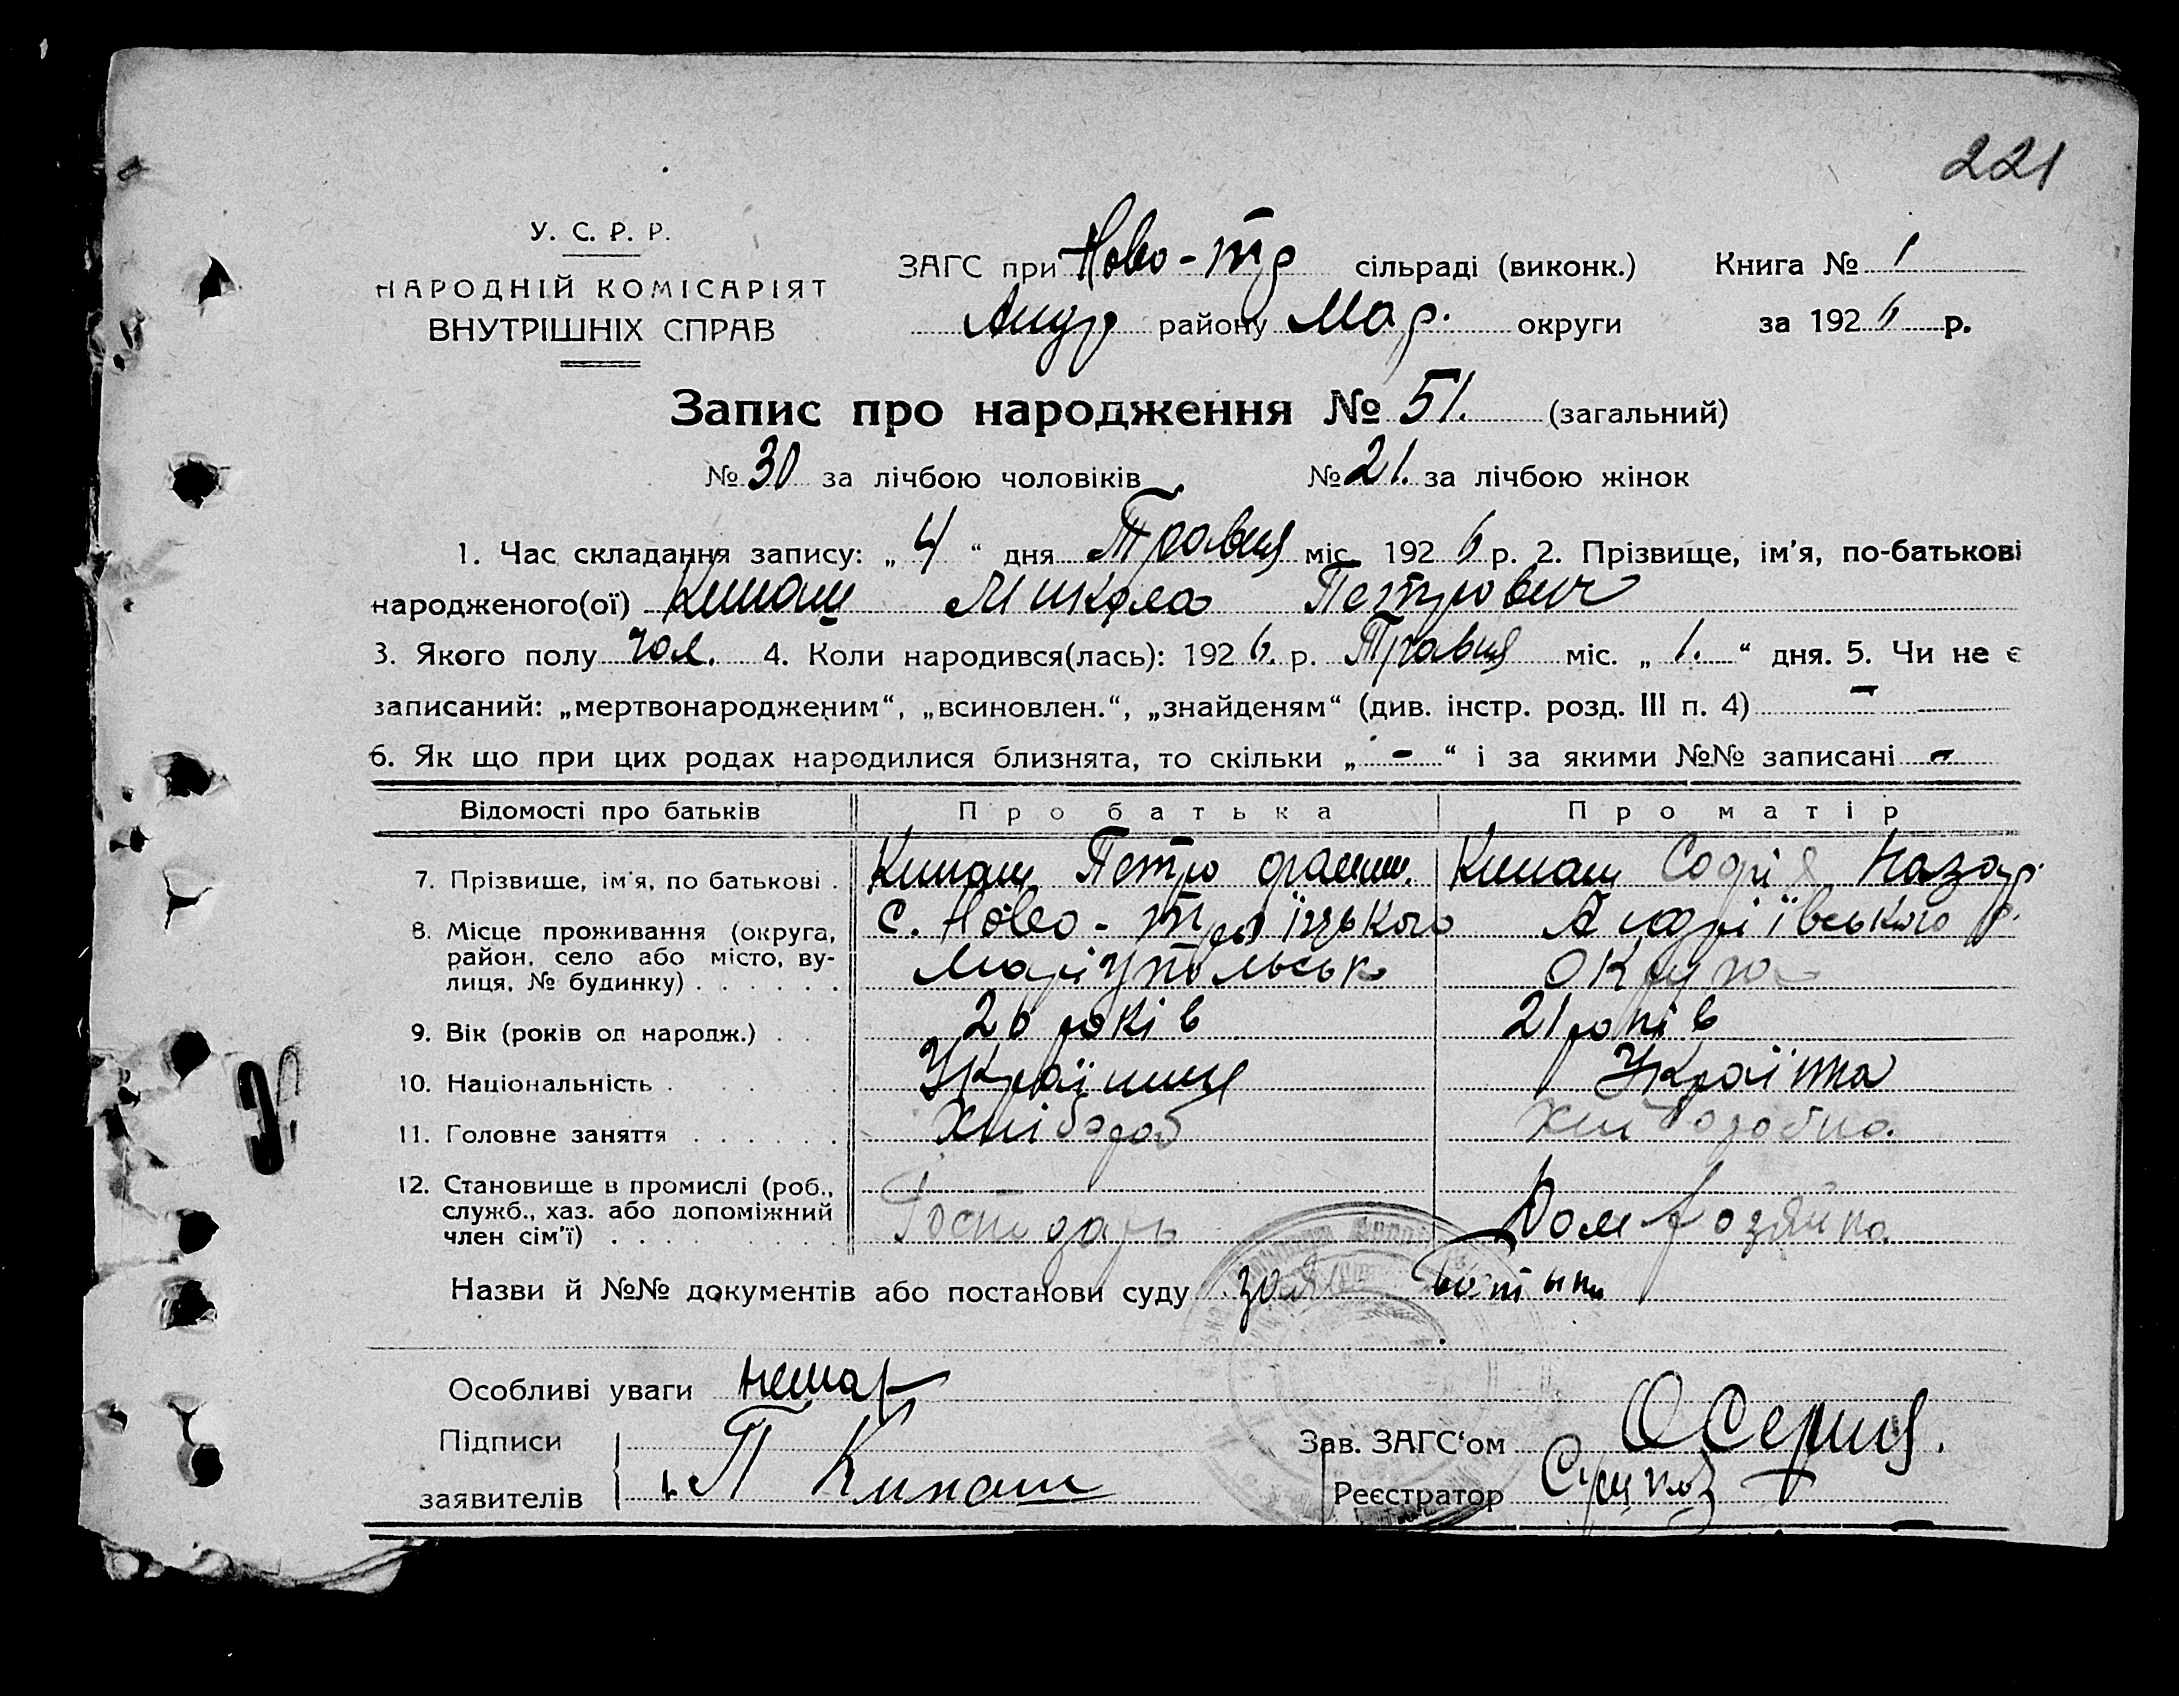 221
У. С. Р. Р.
НАРОДНІЙ КОМІСАРІЯТ
ВНУТРІШНІХ СПРАВ
ЗАГС при Ново-Тр сільраді (виконк.) Книга № 1
Андр району Мар. округи за 1926 р.
Запис про народження № 51. (загальний)
№ 30 за лічбою чоловіків № 21. за лічбою жінок
1. Час складання запису: „ 4 “ дня Травня міс. 1926 р. 2. Прізвище, ім'я, по-батькові
народженого(ої) Кипаш Микола Петрович
3. Якого полу чол. 4. Коли народився(лась): 1926. р. Травня міс. „ 1. “ дня. 5. Чи не є
записаний: „мертвонародженим“, „всиновлен.“, „знайденям“ (див. інстр. розд. III п. 4) -
6. Як що при цих родах народилися близнята, то скільки „ - “ і за якими №№ записані -
Відомості про батьків Про батька Про матір
7. Прізвище, ім'я, по батькові . Кипаш Петро Кипаш Софія Назар.
8. Місце проживання (округа, район, село або місто, вулиця, № будинку) . . . . . . с. Ново-Троїцького Андріївського р.
Маріупольськ округа
9. Вік (років од народж.) . . 20 років 21 років
10. Національність . . . . . Українець Українка
11. Головне заняття . . . . . . Хлібороб Хліборобка
12. Становище в промислі (роб., служб., хаз. або допоміжний член сім'ї) . . . . . . . . Господарь Дом хозяйка
Назви й №№ документів або постанови суду заява
Особливі уваги немає
Підписи
заявителів П Кипаш
Зав. ЗАГС'ом
Реєстратор